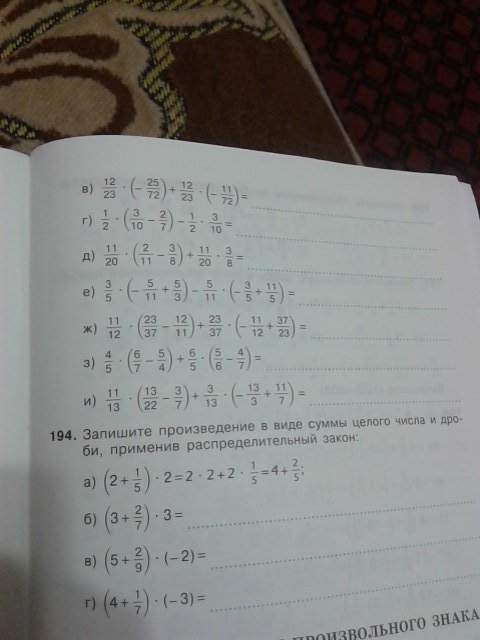 в) 12/23 · (−25/72) + 12/23 · (−11/72) =
г) 1/2 · (3/10 − 2/7) − 1/2 · 3/10 =
д) 11/20 · (2/11 − 3/8) + 11/20 · 3/8 =
е) 3/5 · (−5/11 + 5/3) − 5/11 · (−3/5 + 11/5) =
ж) 11/12 · (23/37 − 12/11) + 23/37 · (−11/12 + 37/23) =
з) 4/5 · (6/7 − 5/4) + 6/5 · (5/6 − 4/7) =
и) 11/13 · (13/22 − 3/7) + 3/13 · (−13/3 + 11/7) =
194. Запишите произведение в виде суммы целого числа и дро-
би, применив распределительный закон:
а) (2 + 1/5) · 2 = 2 · 2 + 2 · 1/5 = 4 + 2/5;
б) (3 + 2/7) · 3 =
в) (5 + 2/9) · (−2) =
г) (4 + 1/7) · (−3) =
ПРОИЗВОЛЬНОГО ЗНАКА